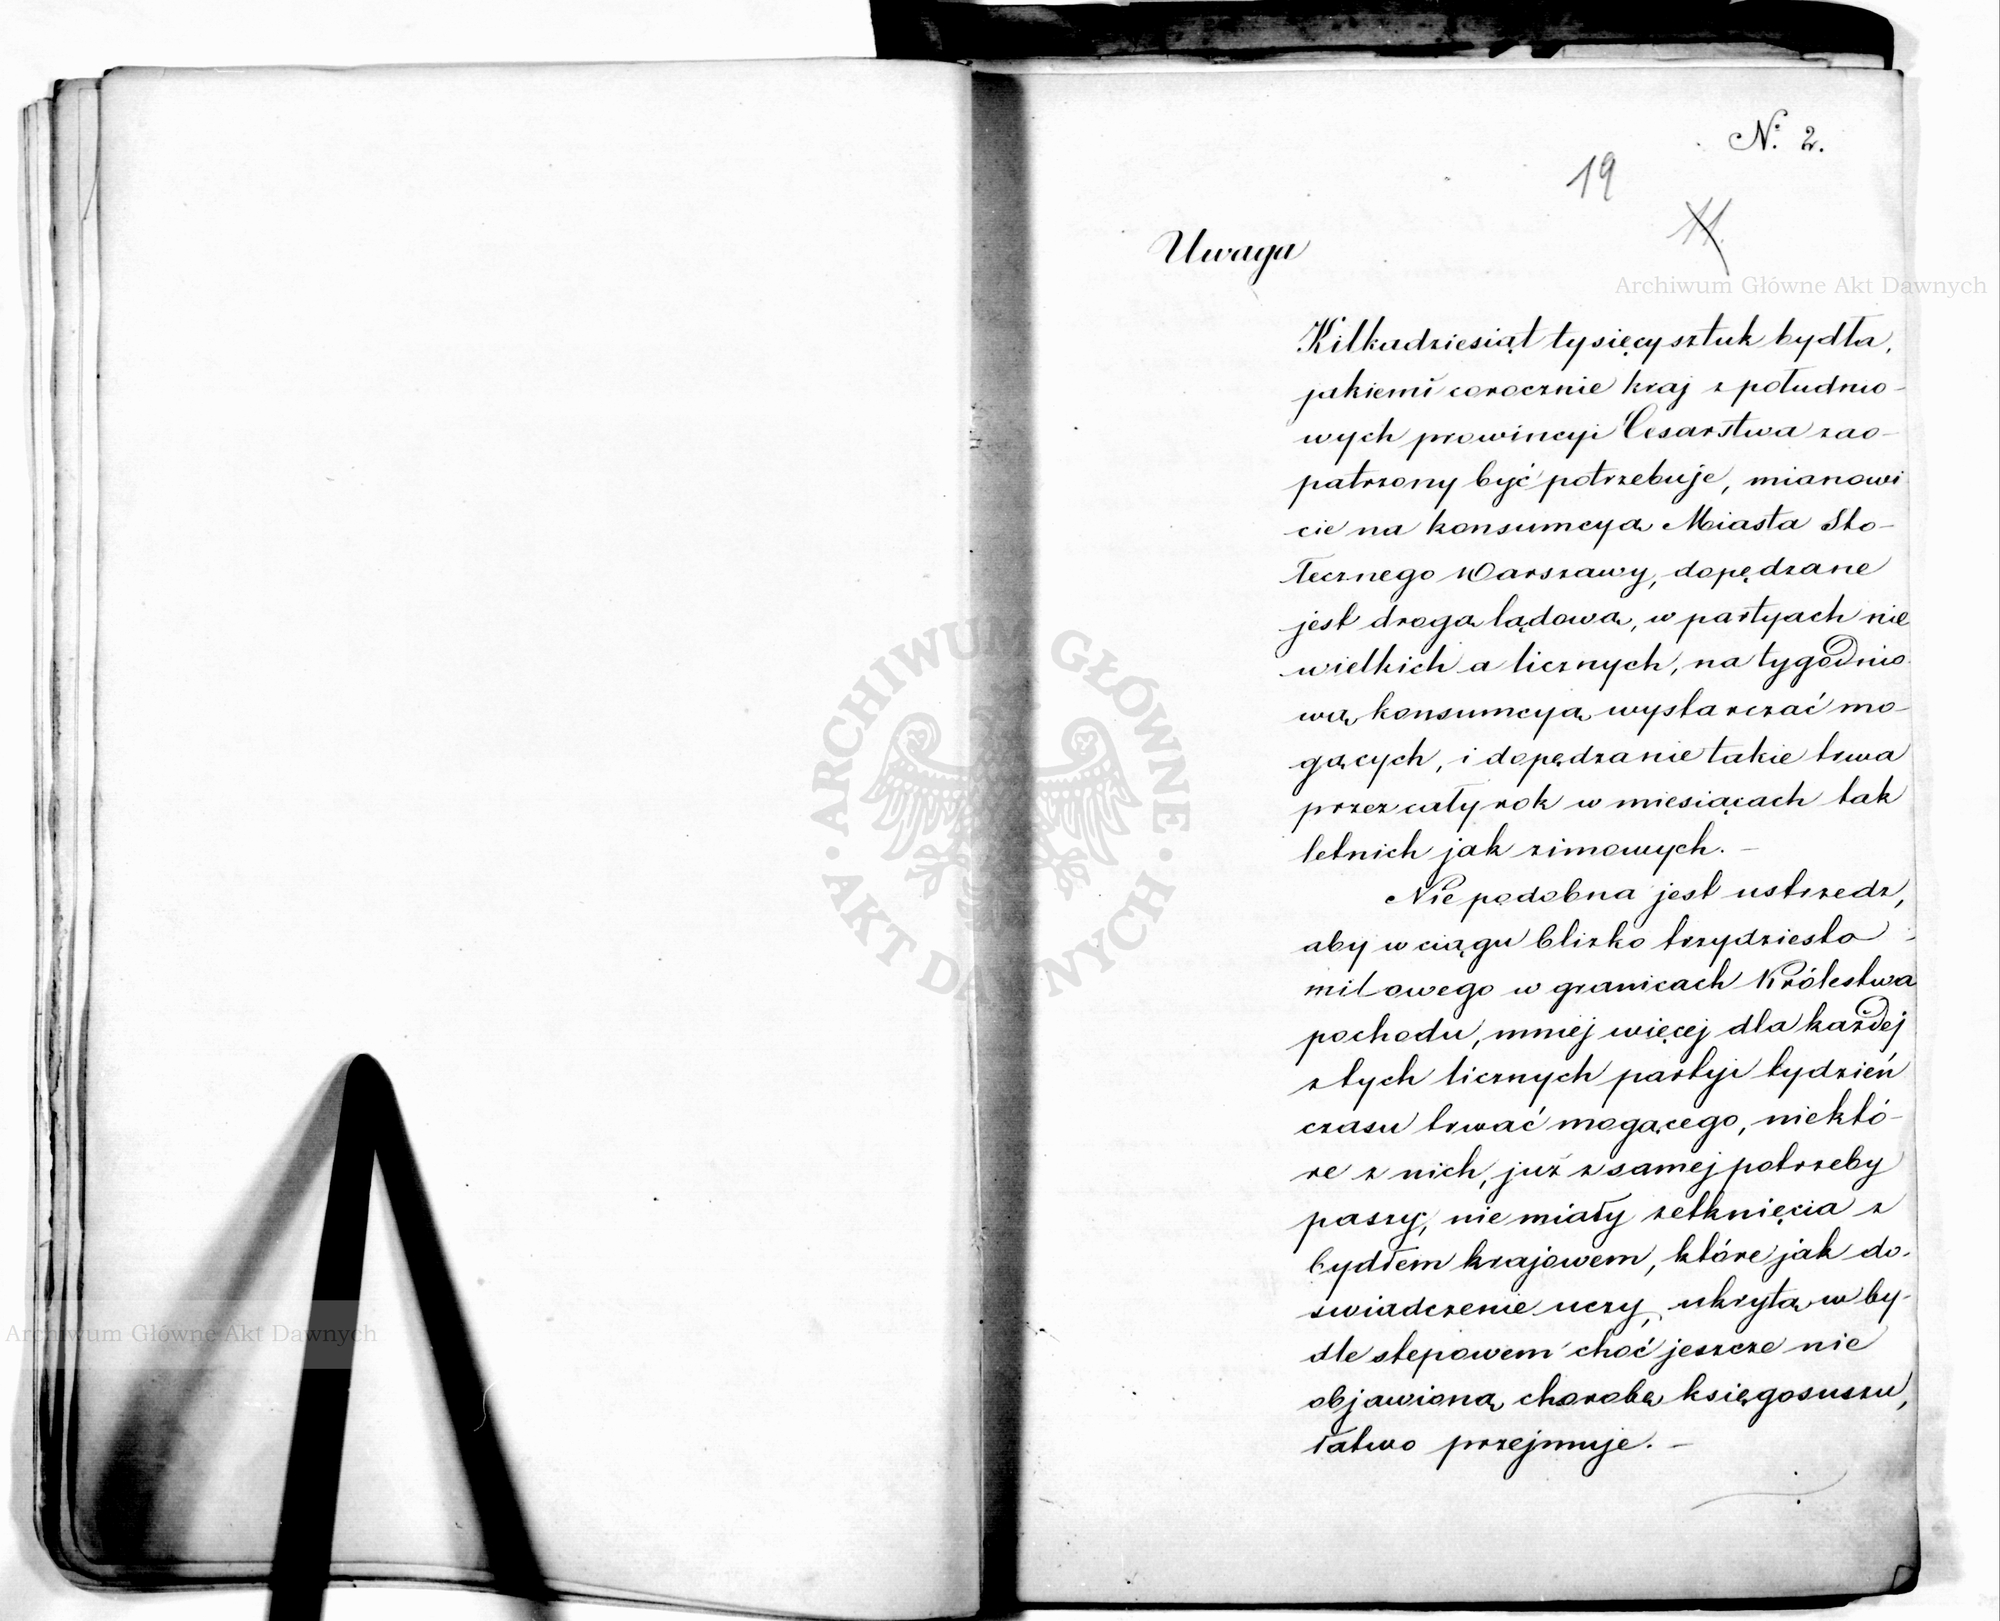 N: 2.
19
11.
Uwaga
Archiwum Główne Akt Dawnych
Kilkadziesiąt tysięcy sztuk bydła,
jakiemi corocznie kraj z południo-
wych prowincyi Cesarstwa zao-
patrzony być potrzebuje, mianowi
cie na konsumcyą Miasta Sto-
łecznego Warszawy, dopędzane
jest drogą lądową, w partyach nie
wielkich a licznych, na tygodnio
wą konsumcyją wystarczać mo-
gących, i dopędzanie takie trwa
przez cały rok w miesiącach tak
letnich jak zimowych. –
Nie podobna jest ustrzedz,
aby w ciągu blizko trzydziesto
milowego w granicach Królestwa
pochodu, mniej więcej dla każdej
z tych licznych partyi tydzień
czasu trwać mogącego, niektó-
re z nich, już z samej potrzeby
paszy, nie miały zetknięcia z
bydłem krajowem, które jak do-
swiadczenie uczy, ukrytą w by-
dle stepowem choć jeszcze nie
objawioną chorobę księgosuszu,
łatwo przejmuje. –
ARCHIWUM GŁÓWNE
AKT DAWNYCH
Archiwum Główne Akt Dawnych